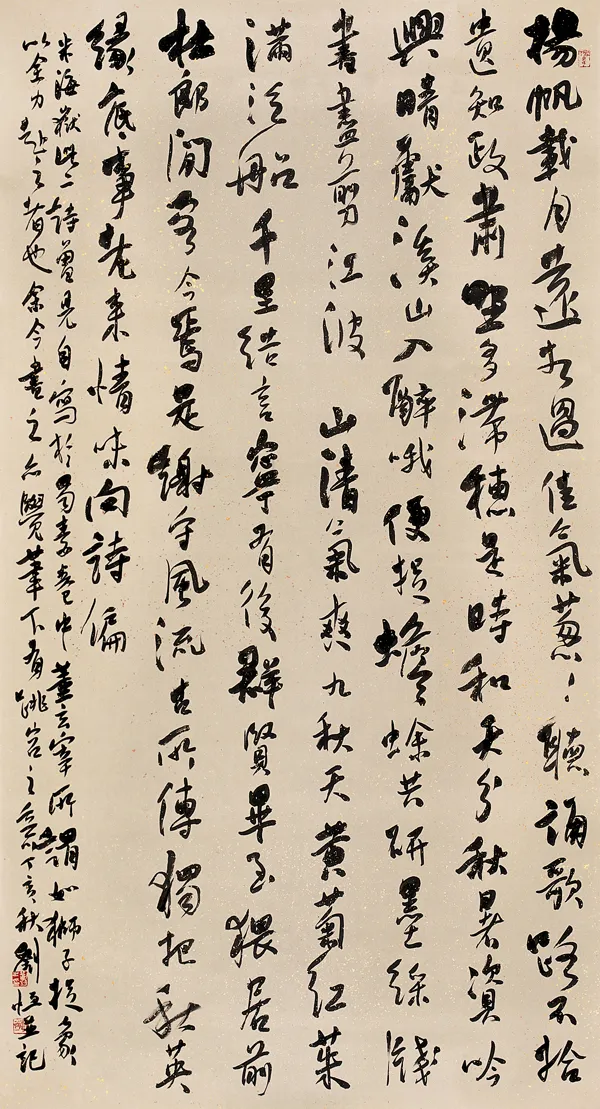 楊帆載月遠相過佳氣葱々聽誦歌路不拾
遺知政肅野多滯穗是時和天分秋暑資吟
興晴獻溪山入醉哦便捉蟾蜍共研墨綵牋
書盡剪江波 山清氣爽九秋天黄菊紅茱
滿泛船千里結言寧有後群賢畢至猥居前
杜郎閒客今焉是謝守風流古所傳獨把秋英
緣底事老来情味向詩偏
米海嶽此二詩曾見自寫於蜀素卷中董玄宰所謂如獅子捉象
以全力赴之者也余今書之亦覺筆下有跳宕之意丁亥秋劉恒並記